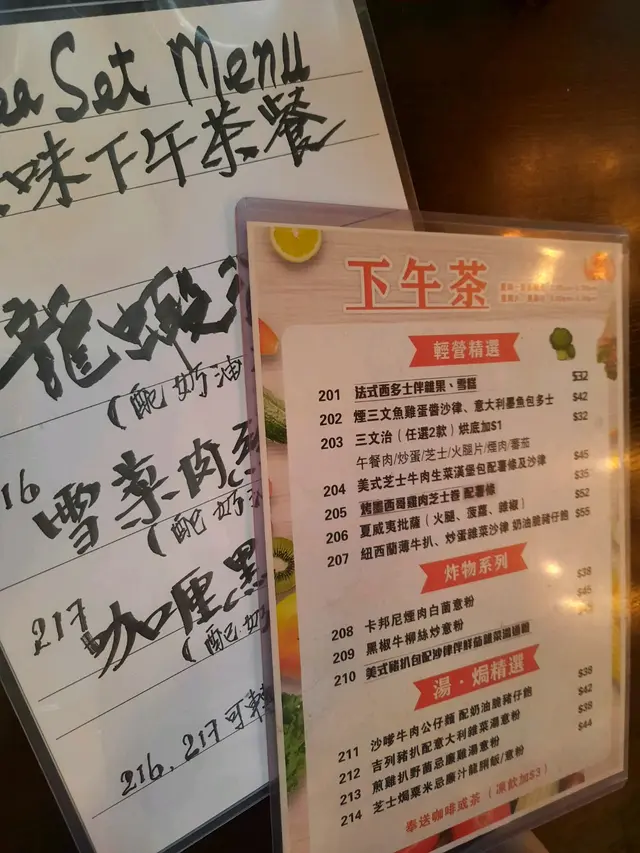 Set Menu
味下午茶餐
龍蝦
(配奶油
16 雪菜肉
(配奶
217 咖喱黑
(配奶
216, 217 可
下午茶
輕營精選
201 法式西多士伴雜果、雪糕 $32
202 煙三文魚雞蛋醬沙律、意大利墨魚包多士 $42
203 三文治（任選2款）烘底加$1 $32
午餐肉/炒蛋/芝士/火腿片/煙肉/蕃茄
204 美式芝士牛肉生菜漢堡包配薯條及沙律 $45
205 烤墨西哥雞肉芝士卷 配薯條 $35
206 夏威夷批薩（火腿、菠蘿、雜椒） $52
207 紐西蘭薄牛扒、炒蛋雜菜沙律 奶油脆豬仔飽 $55
炸物系列
208 卡邦尼煙肉白菌意粉 $38
209 黑椒牛柳絲炒意粉 $45
210 美式豬扒包配沙律伴鮮茄雜菜湯通粉
湯·焗精選
211 沙嗲牛肉公仔麵 配奶油脆豬仔飽 $38
212 吉列豬扒配意大利雜菜湯意粉 $42
213 煎雞扒野菌忌廉雞湯意粉 $39
214 芝士焗粟米忌廉汁龍脷飯/意粉 $44
奉送咖啡或茶（凍飲加$3）